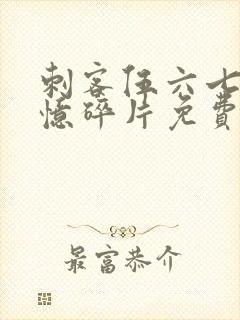 刺客伍六七
憶碎片免費
最富恭介